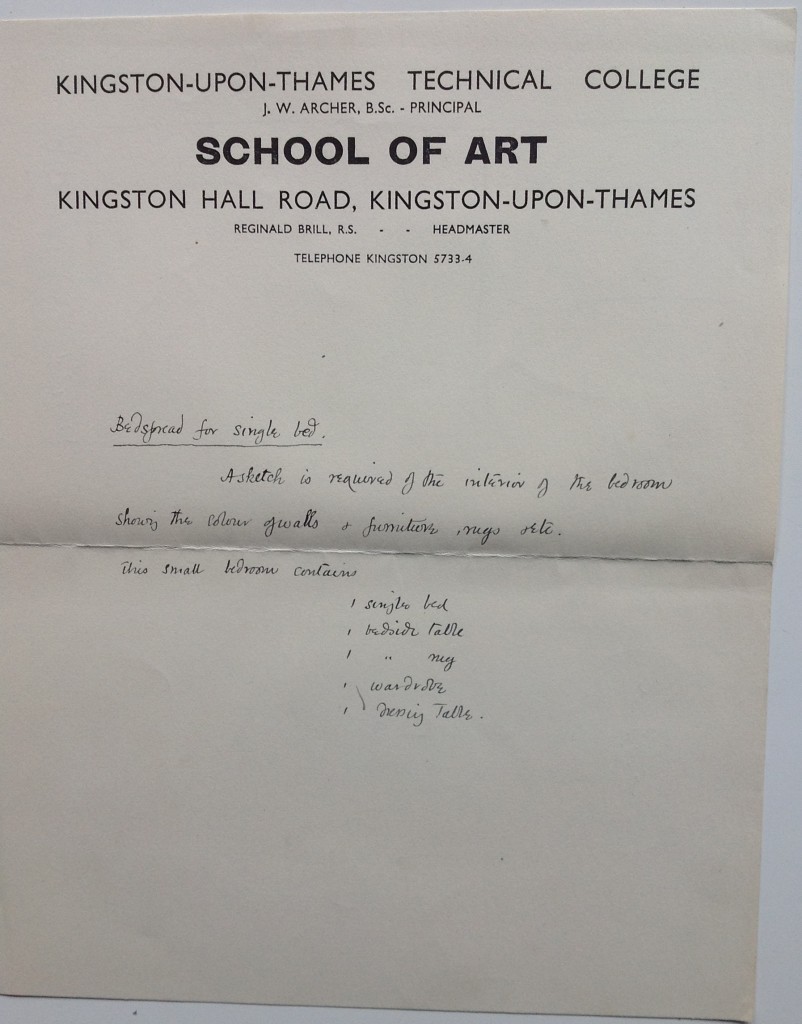 KINGSTON-UPON-THAMES TECHNICAL COLLEGE
J. W. ARCHER, B.Sc. - PRINCIPAL
SCHOOL OF ART
KINGSTON HALL ROAD, KINGSTON-UPON-THAMES
REGINALD BRILL, R.S. - - HEADMASTER
TELEPHONE KINGSTON 5733-4
Bedspread for single bed.
A sketch is required of the interior of the bedroom
showing the colour of walls & furniture, rugs etc.
This small bedroom contains
1 single bed
1 bedside table
1 " rug
1 wardrobe
1 dressing table.